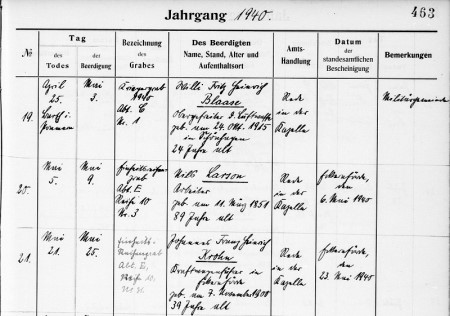 Jahrgang 1940.
453
№
Tag
des Todes
der Beerdigung
Bezeichnung des Grabes
Des Beerdigten
Name, Stand, Alter und Aufenthaltsort
Amts-Handlung
Datum
der standesamtlichen Bescheinigung
Bemerkungen
19.
April
25.
Mai
3.
Kriegergrab
1940
Abt. E
Nr. 1
Willi Fritz Heinrich
Blaase
Obergefreiter d. Luftwaffe
geb. am 24. Okt. 1915
in Schönhagen
24 Jahre alt
Rede
in der
Kapelle
Militärgemeinde
20.
Mai
5.
Mai
9.
Abt. E
Reihe 10
Nr. 3
Larson
Arbeiter
geb. am 11. März 1851
89 Jahre alt
Rede
in der
Kapelle
Eckernförde,
den
6. Mai 1940
21.
Mai
21.
Mai
25.
Einheits-
Reihengrab
Abt. E,
Reihe 10
Johannes Franz Heinrich
Krohn
in
Eckernförde
geb. am 7. November 1900
39 Jahre alt
Rede
in der
Kapelle
Eckernförde,
den
23. Mai 1940